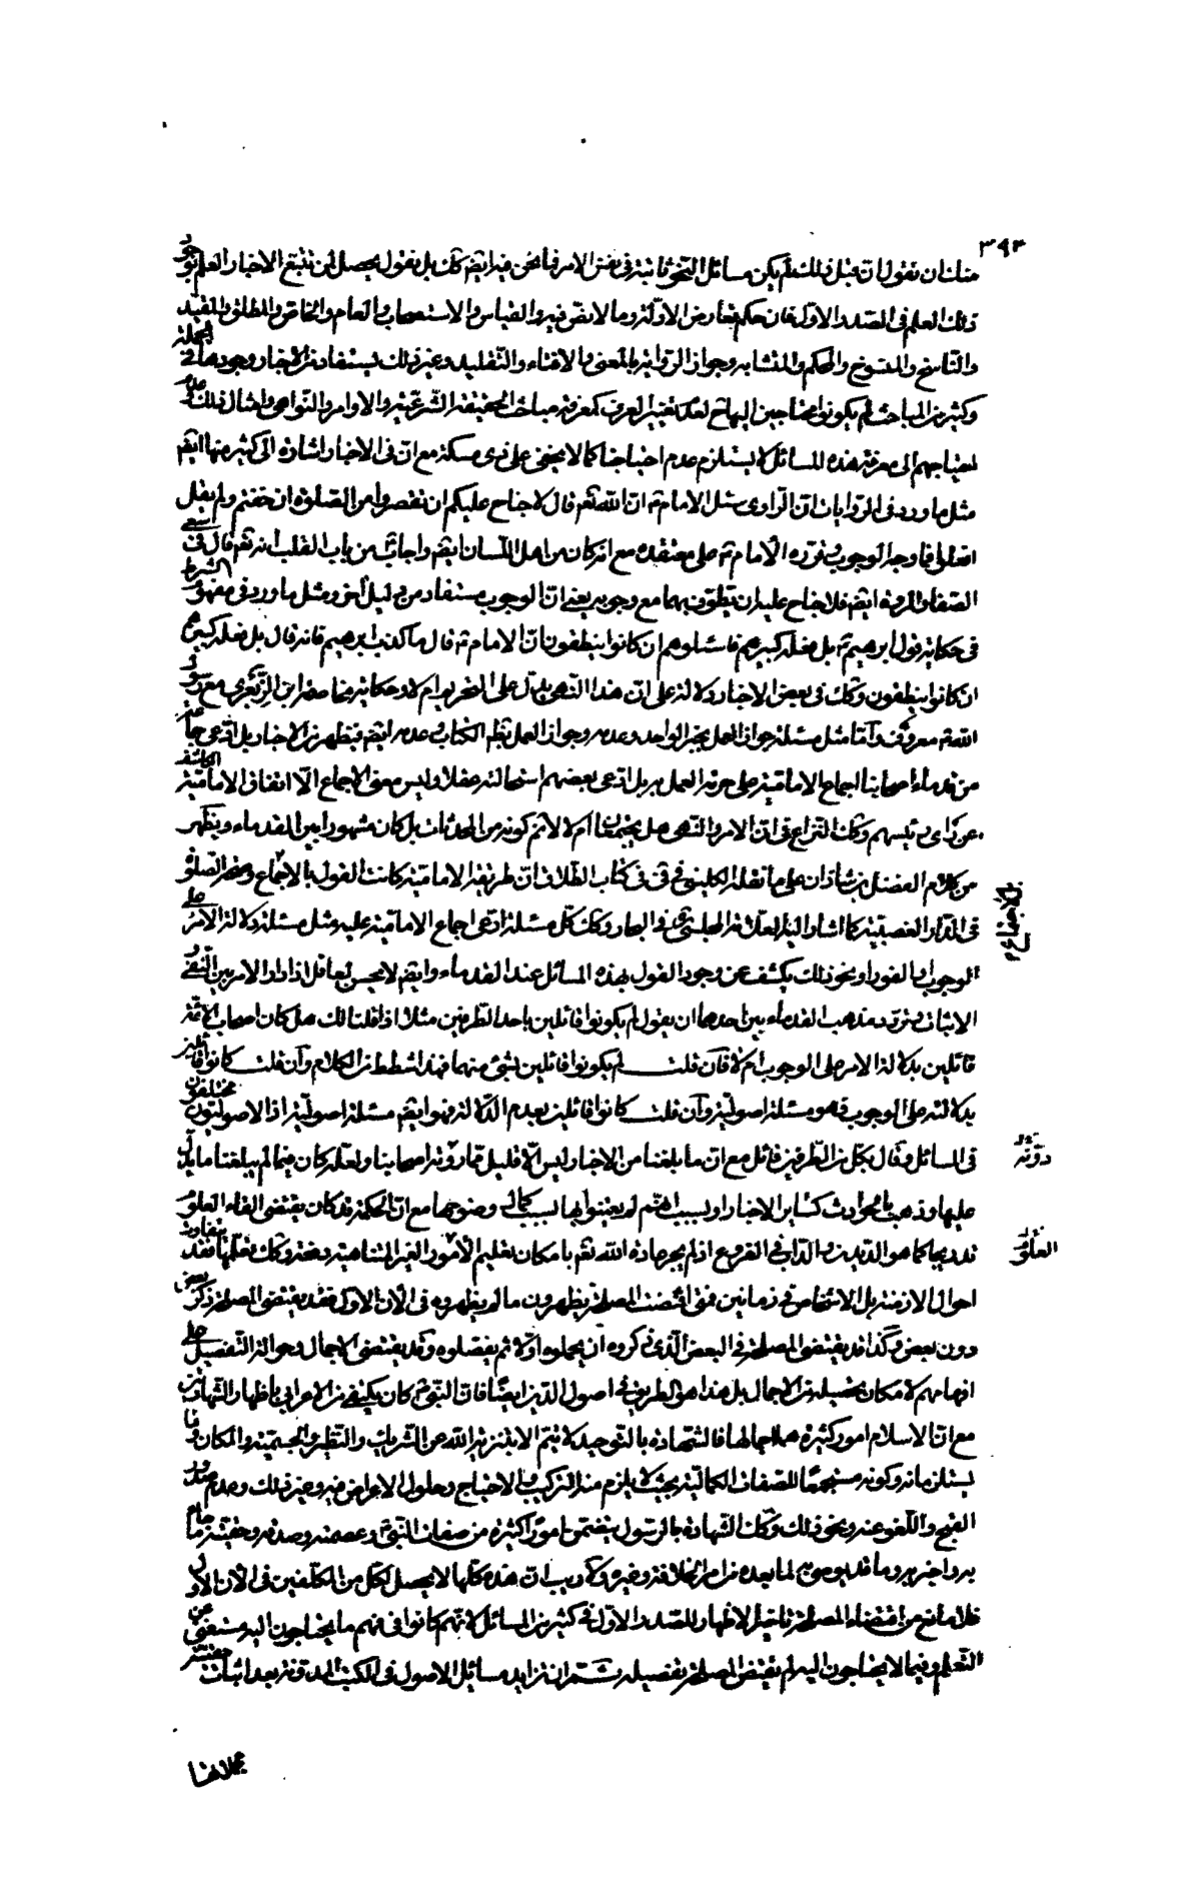 ٣٩٣
منك ان تقول ان قبل ذلك لم يكن مسائل النحو ثابتة في نفس الامر فما نحن فيه ايضا كك بل نقول يحصل لمن تتبع الاخبار العلم بوجود
ذلك العلم في الصدر الاول فان حكم تعارض الادلة وما لا نص فيه والقياس والاستصحاب والعام والخاص والمطلق والمقيد
والناسخ والمنسوخ والمحكم والمتشابه وجواز الرواية بالمعنى والافتاء والتقليد وغير ذلك يستفاد من الاخبار وجودها في الجملة
وكثير من المباحث لم يكونوا محتاجين اليها لعدم تغيير العرف كمعرفة مباحث الحقيقة الشرعية والاوامر والنواهي وامثال ذلك وعدم
احتياجهم الى معرفة هذه المسائل لا يستلزم عدم احتياجنا كما لا يخفى على ذي مسكة مع ان في الاخبار اشارة الى كثير منها ايضا
مثل ما ورد في الروايات ان الراوي سئل الامام ع ان الله تع قال لا جناح عليكم ان تقصروا من الصلوة ان خفتم ولم يقل
افعلوا فما وجه الوجوب وقرره الامام ع على معتقده مع انه كان من اهل اللسان ايضا واجاب من باب القلب انه تع قال في السعي
الصفا والمروة ايضا فلا جناح عليه ان يطوف بهما مع وجوبه يعني ان الوجوب مستفاد من دليل اخر ومثل ما ورد في مفهوم الشرط
في حكاية قول ابرهيم ع بل فعله كبيرهم فاسئلوهم ان كانوا ينطقون ان الامام ع قال ما كذب ابرهيم فانه قال بل فعله كبيرهم
ان كانوا ينطقون وكك في بعض الاخبار دلالة على ان هذا النهي يدل على التحريم ام لا وحكاية مخاصمة ابن الزبعرى مع رسول
الله ص معروفة واما مثل مسئلة جواز العمل بخبر الواحد وعدمه وجواز العمل بظم الكتاب وعدمه ايضا فيظهر من الاخبار بل ادعى جماعة
من قدماء اصحابنا اجماع الامامية على حرمة العمل به بل ادعى بعضهم استحالته عقلا وليس معنى الاجماع الا اتفاق الامامية الكاشف
عن راي رئيسهم وكك النزاع في ان الامر والنهي هل يجتمعان ام لا لا نم كونه من المحدثات بل كان مشهورا بين القدماء ويظهر
من كلام الفضل بن شاذان على ما نقله الكليني في في كتاب الطلاق ان طريقة الامامية كانت القول بالاجتماع وصحة الصلوة
في الدار الغصبية كما اشار اليه العلامة المجلسي في البحار وكك كل مسئلة ادعى اجماع الامامية عليه ومثل مسئلة دلالة الامر على
الوجوب او الفور او نحو ذلك يكشف عن وجود القول بهذه المسائل عند القدماء وايضا لا يحسن لعاقل اذا دار الامر بين النفي و
الاثبات وتردد مذهب القدماء بين احدهما ان يقول لم يكونوا قائلين باحد الطرفين مثلا اذا قلنا لك هل كان اصحاب الائمة
قائلين بدلالة الامر على الوجوب ام لا فان قلت لم يكونوا قائلين بشئ منهما فهذا شطط من الكلام وان قلت كانوا قائلين
بدلالته على الوجوب فهو مسئلة اصولية وان قلت كانوا قائلين بعدم الدلالة فهو ايضا مسئلة اصولية اذ الاصوليون مختلفون
في المسائل وقال بكل من الطرفين قائل مع ان ما بلغنا من الاخبار ليس الا قليل مما رواه اصحابنا ولعله كان فيما لم يبلغنا ما يدل
عليها وذهب بالحوادث كساير الاخبار او بسبب انهم لم يعتنوا بها لسبب كمال وضوحها مع ان الحكمة قد كان يقتضي القاء العلوم
تدريجا كما هو الديدن والداب في الفروع اذ لم يجر عادة الله تع بامكان تعليم الامور الغير المتناهية دفعة وكك تعلمها فقد يتفاوت
احوال الازمنة بل الاشخاص في زمانين فمتى اقتضت المصلحة يظهرون ما لم يظهروه في الان الاول فقد يقتضي المصلحة ذكر بعض
دون بعض وكذا قد يقتضي المصلحة في البعض الذي ذكروه ان يجملوه اولا ثم يفصلوه وقد يقتضي الاجمال وحوالة التفصيل على
افهامهم لامكان تحصيله من الاجمال بل هذا هو الطريق في اصول الدين ايضا فان النبي ص كان يكتفي من الاعرابي باظهار الشهادتين
مع ان الاسلام امور كثيرة هما اجمالها فالشهادة بالتوحيد لا يتم الا بتنزيه الله عن الشريك والنظير والجسمية والمكان وما
يستلزمانه وكونه مستجمعا للصفات الكمالية بحيث لا يلزم منه التركيب والاحتياج وحلول الاعراض فيه وغير ذلك وعدم صدور
القبيح واللغو عنه ونحو ذلك وكك الشهادة بالرسول يتضمن امورا كثيرة من صفات النبي ص وعصمته وصدقه وحقية ما جاء
به واخبر به وما قد يوصى به لما بعده من امر الخلافة وغيره ولا ريب ان هذه كلها لا يحصل لكل من المكلفين في الان الاول
فلا مانع من اقتضاء المصلحة تاخير الاظهار للصدر الاول في كثير من المسائل لانهم كانوا في فهم ما يحتاجون اليه مستغنين عن
التعلم وفيما لا يحتاجون اليه لم يقتض المصلحة تفصيله ثم ان تزايد مسائل الاصول في الكتب المدونة بعد اثبات
العلوم
مجملاتها